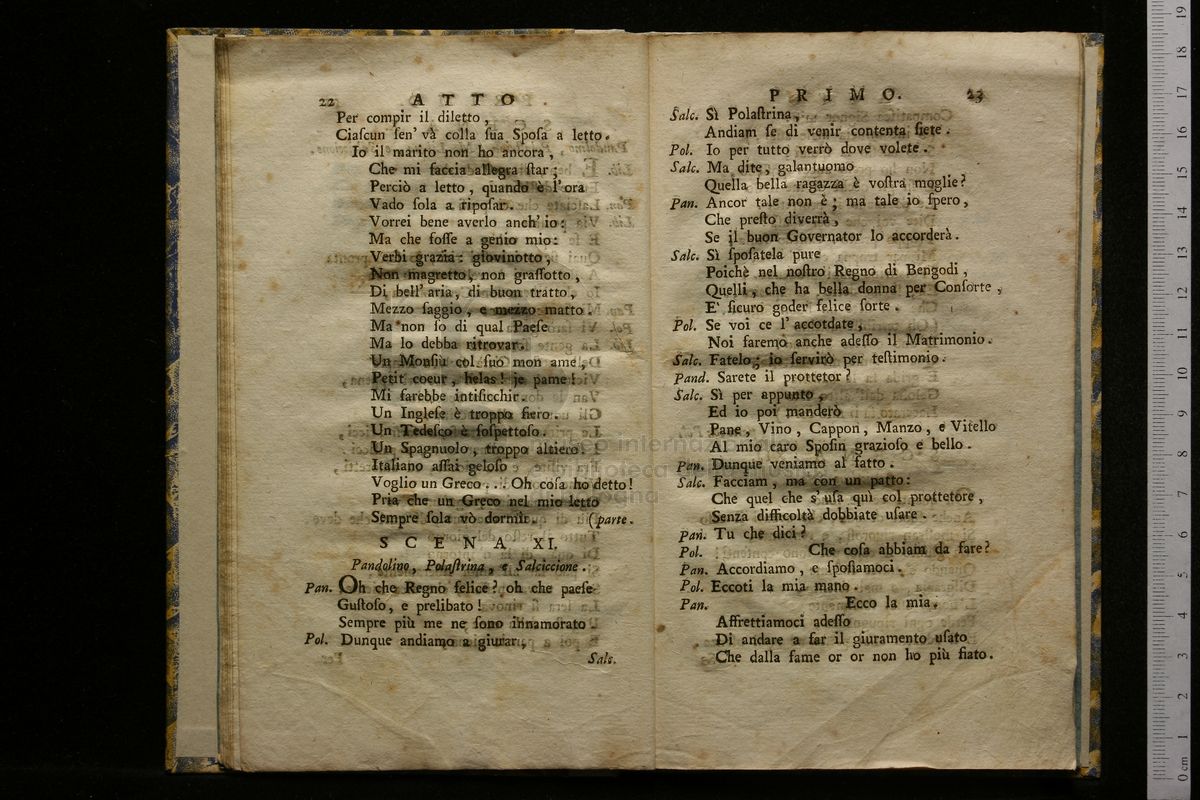 22 ATTO
Per compir il diletto,
Ciaſcun ſen' và colla ſua Spoſa a letto.
Io il marito non ho ancora,
Che mi faccia allegra ſtar;
Perciò a letto, quando è l'ora
Vado ſola a ripoſar.
Vorrei bene averlo anch' io:
Ma che foſſe a genio mio:
Verbi grazia: giovinotto,
Non magretto, non graſſotto,
Di bell' aria, di buon tratto,
Mezzo ſaggio, e mezzo matto.
Ma non ſo di qual Paeſe
Ma lo debba ritrovar.
Un Monſiù col ſuò mon ame!,
Petit coeur, helas! je pame!
Mi farebbe intiſicchir.
Un Ingleſe è troppo fiero.
Un Tedeſco è ſoſpettoſo.
Un Spagnuolo, troppo altiero.
Italiano aſſai geloſo
Voglio un Greco... Oh coſa ho detto!
Pria che un Greco nel mio letto
Sempre ſola vò dormir. (parte.
SCENA XI.
Pandolino, Polaſtrina, e Salciccione.
Pan. Oh che Regno felice? oh che paeſe
Guſtoſo, e prelibato!
Sempre più me ne ſono innamorato.
Pol. Dunque andiamo a giurar,
Salc.
PRIMO. 23
Salc. Sì Polaſtrina,
Andiam ſe di venir contenta ſiete.
Pol. Io per tutto verrò dove volete.
Salc. Ma dite, galantuomo
Quella bella ragazza è voſtra moglie?
Pan. Ancor tale non è; ma tale io ſpero,
Che preſto diverrà,
Se il buon Governator lo accorderà.
Salc. Sì ſpoſatela pure
Poichè nel noſtro Regno di Bengodi,
Quelli, che ha bella donna per Conſorte,
E' ſicuro goder felice ſorte.
Pol. Se voi ce l' accotdate,
Noi faremo anche adeſſo il Matrimonio.
Salc. Fatelo; io ſervirò per teſtimonio.
Pand. Sarete il prottetor?
Salc. Sì per appunto,
Ed io poi manderò
Pane, Vino, Cappon, Manzo, e Vitello
Al mio caro Spoſin grazioſo e bello.
Pan. Dunque veniamo al fatto.
Salc. Facciam, ma con un patto:
Che quel che s' uſa quì col prottetore,
Senza difficoltà dobbiate uſare.
Pan. Tu che dici?
Pol. Che coſa abbiam da fare?
Pan. Accordiamo, e ſpoſiamoci.
Pol. Eccoti la mia mano.
Pan. Ecco la mia.
Affrettiamoci adeſſo
Di andare a far il giuramento uſato
Che dalla fame or or non ho più fiato.